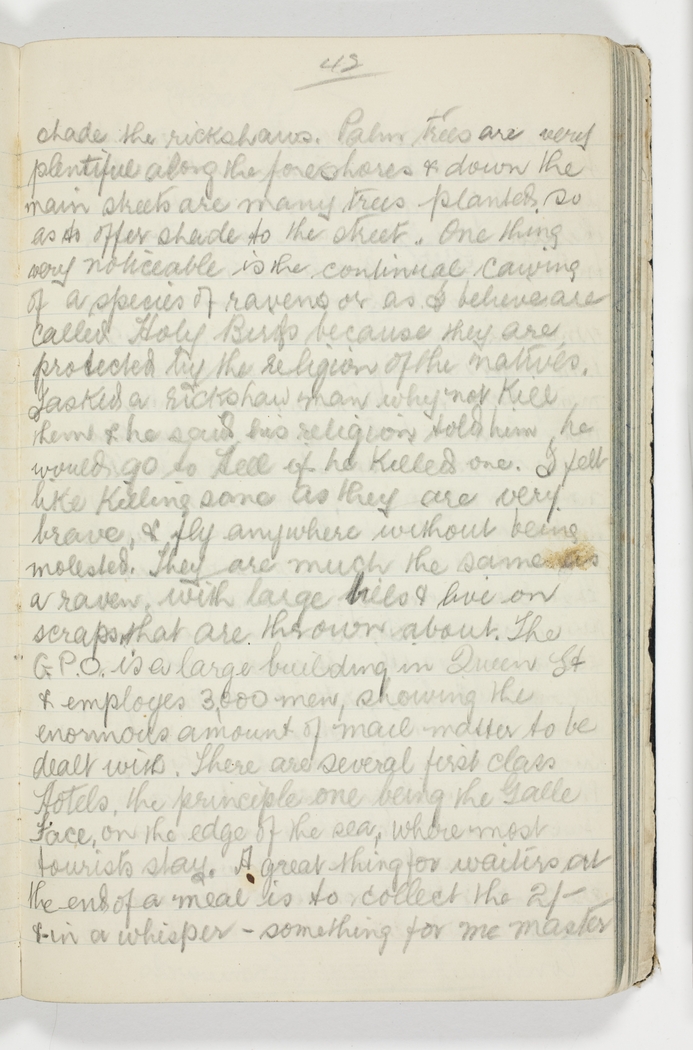 42
shade the rickshaws. Palm trees are very
plentiful along the foreshores & down the
main streets are many trees planted, so
as to offer shade to the street. One thing
very noticeable is the continual cawing
of a species of ravens or as I believe are
called Holy Birds because they are
protected by the religion of the natives.
I asked a Rickshaw man why not kill
them & he said his religion told him, he
would go to Hell if he killed one. I felt
like killing some as they are very
brave, & fly anywhere without being
molested. They are much the same as
a raven, with large bills & live on
scraps, that are thrown about. The
G.P.O. is a large building in Queen St
& employes 3,000 men, showing the
enormois amount of mail matter to be
dealt with. There are several first class
Hotels, the principle one being the Galle
Face, on the edge of the sea, where most
tourists stay. A great thing for waiters at
the end of a meal is to collect the 2/-
& in a whisper - something for me master